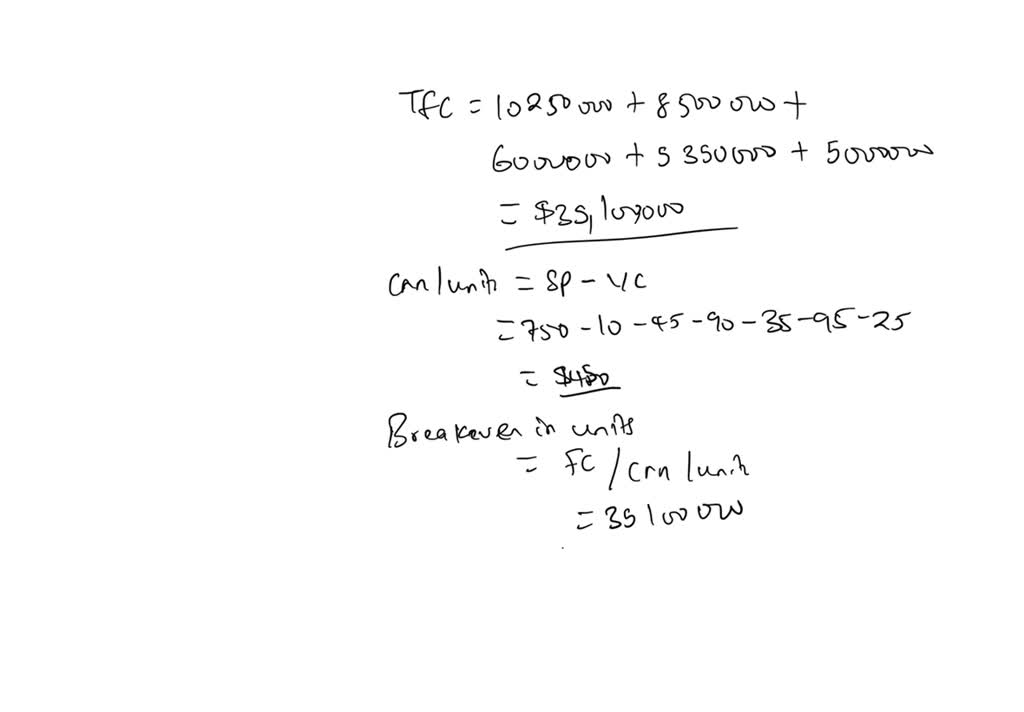 TFC = 10250000 + 8500000 +
6000000 + 5350000 + 5000000
= $35,100,000
Cm/unit = SP - VC
= 750 - 10 - 45 - 90 - 35 - 95 - 25
= $450
Breakeven in units
= FC / Cm / unit
= 35100000